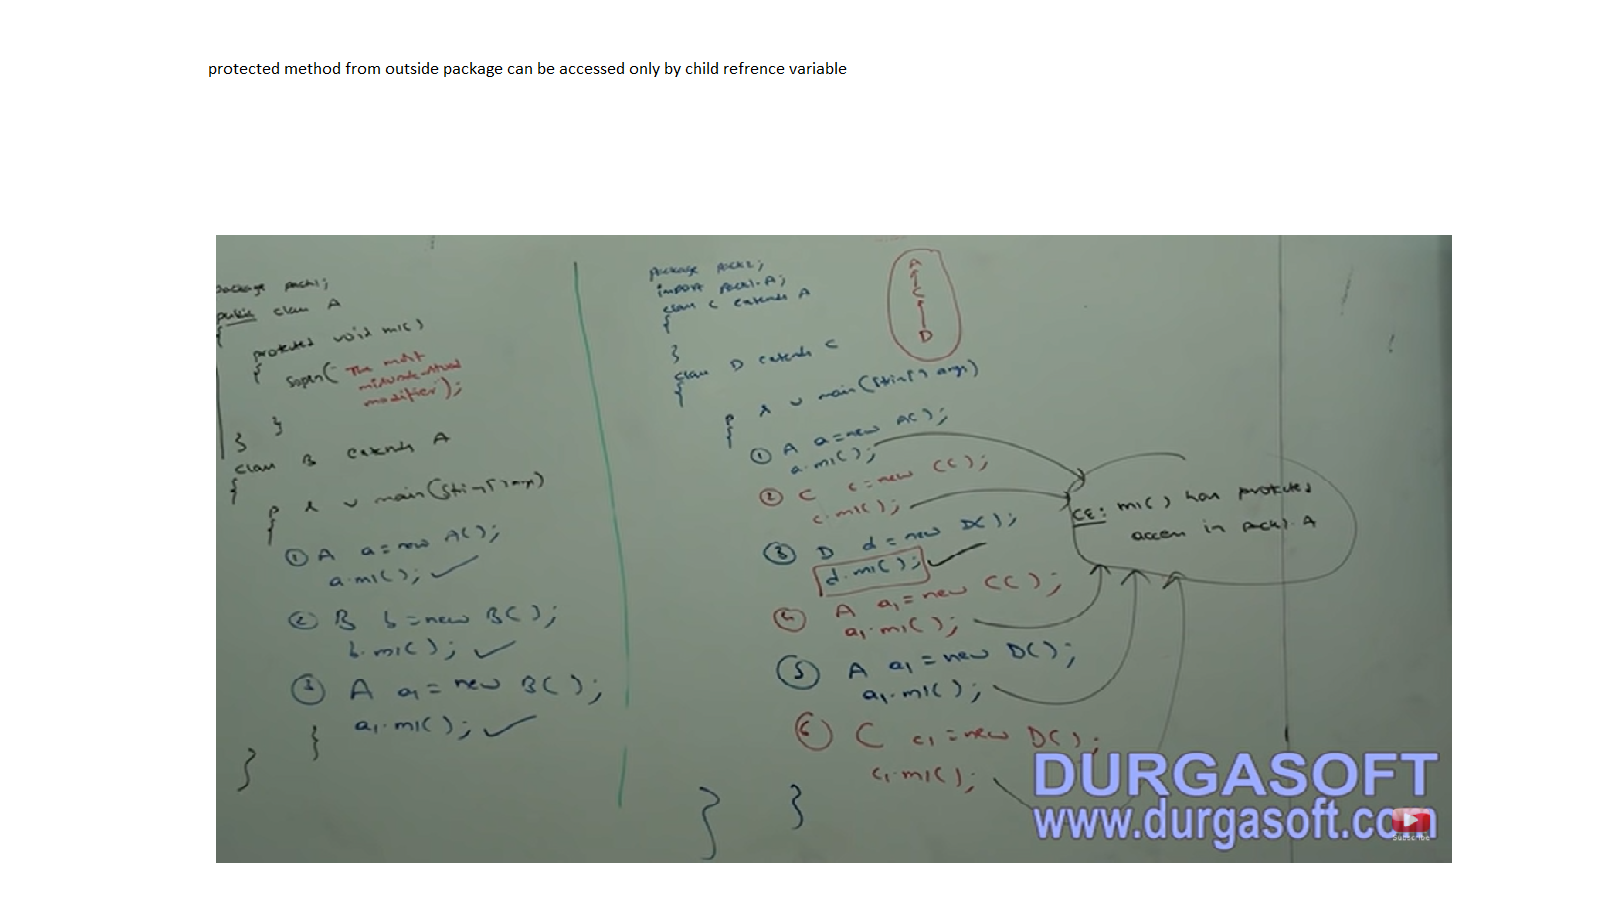 protected method from outside package can be accessed only by child refrence variable
package pack1;
public class A
{
protected void m1()
{
sopln("The most
misunderstood
modifier");
}
}
class B extends A
{
p s v main(String[] args)
{
① A a=new A();
a.m1(); ✓
② B b=new B();
b.m1(); ✓
③ A a1=new B();
a1.m1(); ✓
}
}
package pack2;
import pack1.A;
class C extends A
{
}
class D extends C
{
p s v main(String[] args)
{
① A a=new A();
a.m1();
② C c=new C();
c.m1();
③ D d=new D();
d.m1(); ✓
④ A a1=new C();
a1.m1();
⑤ A a1=new D();
a1.m1();
⑥ C c1=new D();
c1.m1();
}
}
A
C
D
CE: m1() has protected
access in pack1.A
DURGASOFT
www.durgasoft.com
SUBSCRIBE